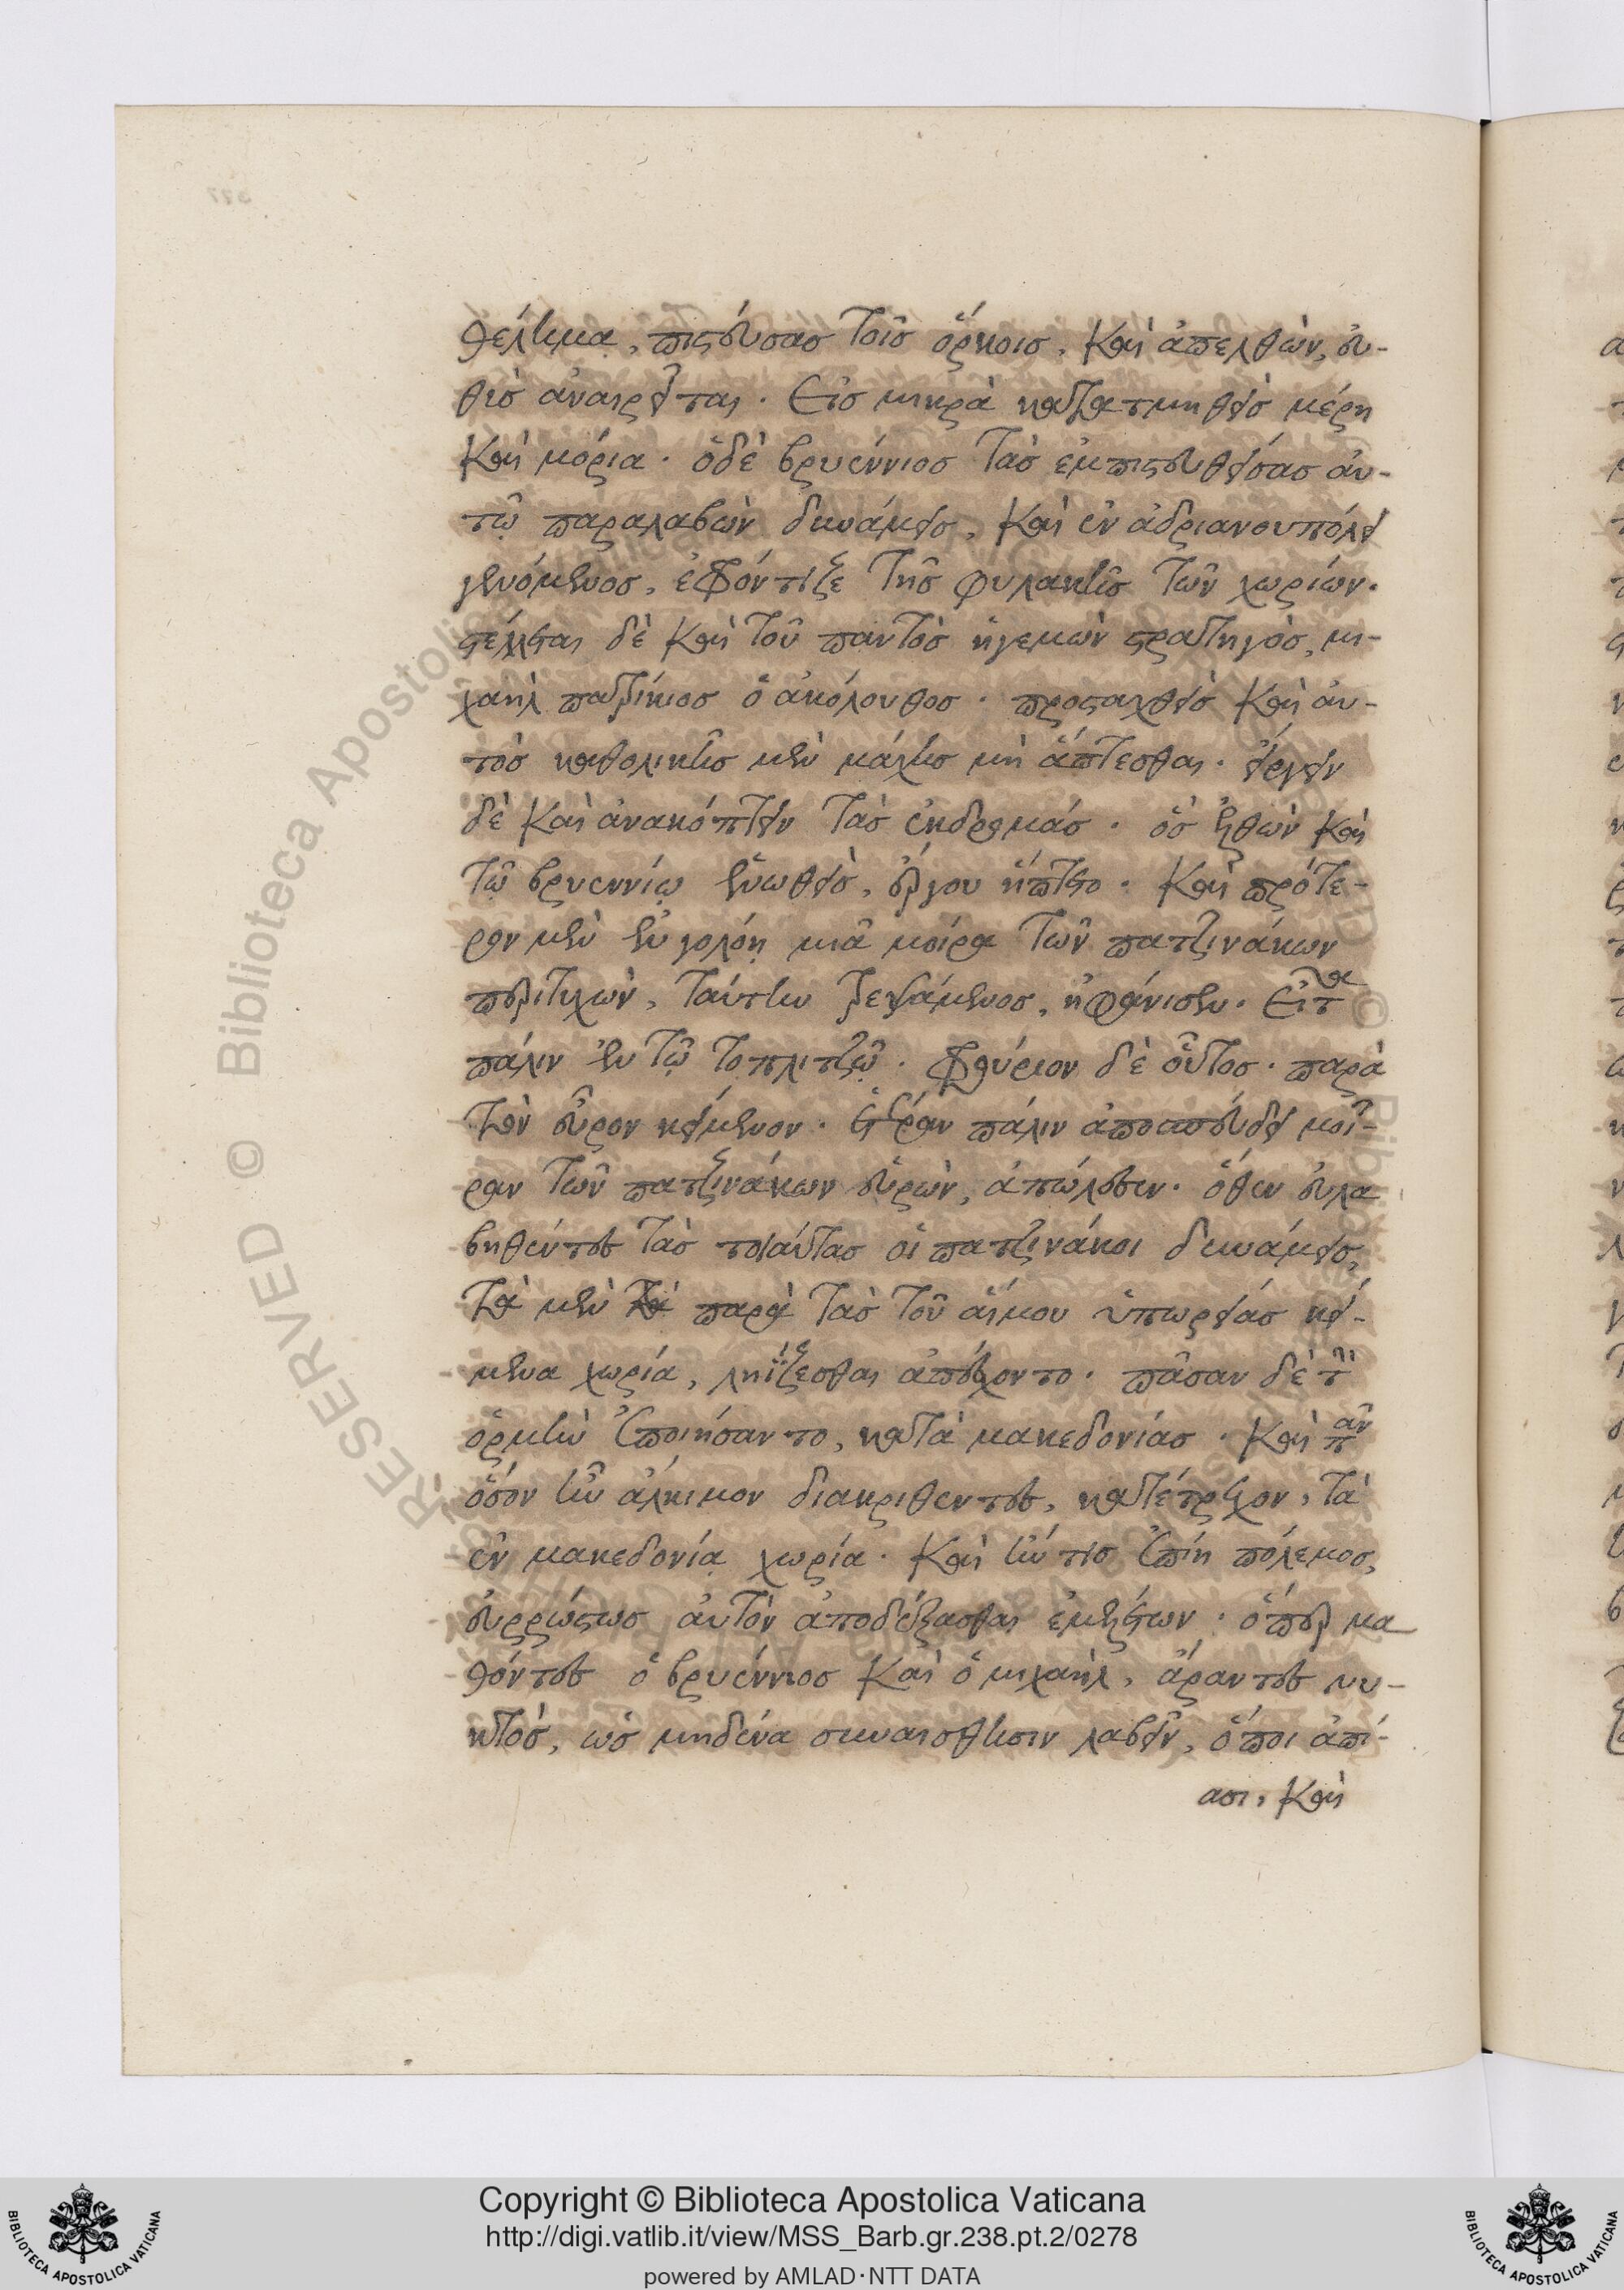 θέλημα, πιστεύσας τοῖς ὅρκοις, καὶ ἀπελθὼν, εὐ-
θὺς ἀναιρεῖται. εἰς μικρὰ κατατμηθεὶς μέρη
καὶ μόρια. ὁ δὲ βρυέννιος τὰς ἐμπιστευθείσας αὐ-
τῷ παραλαβὼν δυνάμεις, καὶ ἐν ἀδριανουπόλει
γενόμενος, ἐφρόντιζε τῆς φυλακῆς τῶν χωρίων.
στέλλεται δὲ καὶ τοῦ παντὸς ἡγεμὼν στρατηγὸς, μι-
χαὴλ πατρίκιος ὁ ἀκόλουθος. προσταχθεὶς καὶ αὐ-
τὸς καθολικῆς μὲν μάχης μὴ ἅπτεσθαι. εἴργειν
δὲ καὶ ἀνακόπτειν τὰς ἐκδρομάς. ὃς ἐλθὼν καὶ
τῷ βρυεννίῳ ἑνωθεὶς, ἔργου ἥπτετο. καὶ πρότε-
ρον μὲν ἐν γολόῃ μιᾷ μοίρᾳ τῶν πατζινάκων
περιτυχὼν, ταύτην τρεψάμενος, ἠφάνισεν. εἶτα
πάλιν ἐν τῷ τοπλιτζῷ. φρούριον δὲ οὗτος. παρὰ
τὸν εὖρον κείμενον. ἑτέραν πάλιν ἀποσπάδα μοῖ-
ραν τῶν πατζινάκων εὑρὼν, ἀπώλεσεν. ὅθεν εὐλα
βηθέντες τὰς τοιαύτας οἱ πατζινάκοι δυνάμεις,
τὰ μὲν τὰ παρὰ τὰς τοῦ αἵμου ὑπωρείας κεί-
μενα χωρία, ληΐζεσθαι ἀπέσχοντο. πᾶσαν δὲ τὴν
ὁρμὴν ἐποιήσαντο, κατὰ μακεδονίας. καὶ πᾶν
ὅσον ἦν ἄλκιμον διακριθέντες, κατέτρεχον, τὰ
ἐν μακεδονίᾳ χωρία. καὶ ἤν τις ἐπίῃ πόλεμος,
εὐρρώστως αὐτὸν ἀποδέξασθαι ἐμελέτων. ὅπερ μα
θόντες ὁ βρυέννιος καὶ ὁ μιχαὴλ, ἄραντες νυ-
κτὸς, ὡς μηδένα συναίσθησιν λαβεῖν, ὅποι ἀπί-
ασι, καὶ
Copyright © Biblioteca Apostolica Vaticana
http://digi.vatlib.it/view/MSS_Barb.gr.238.pt.2/0278
powered by AMLAD·NTT DATA